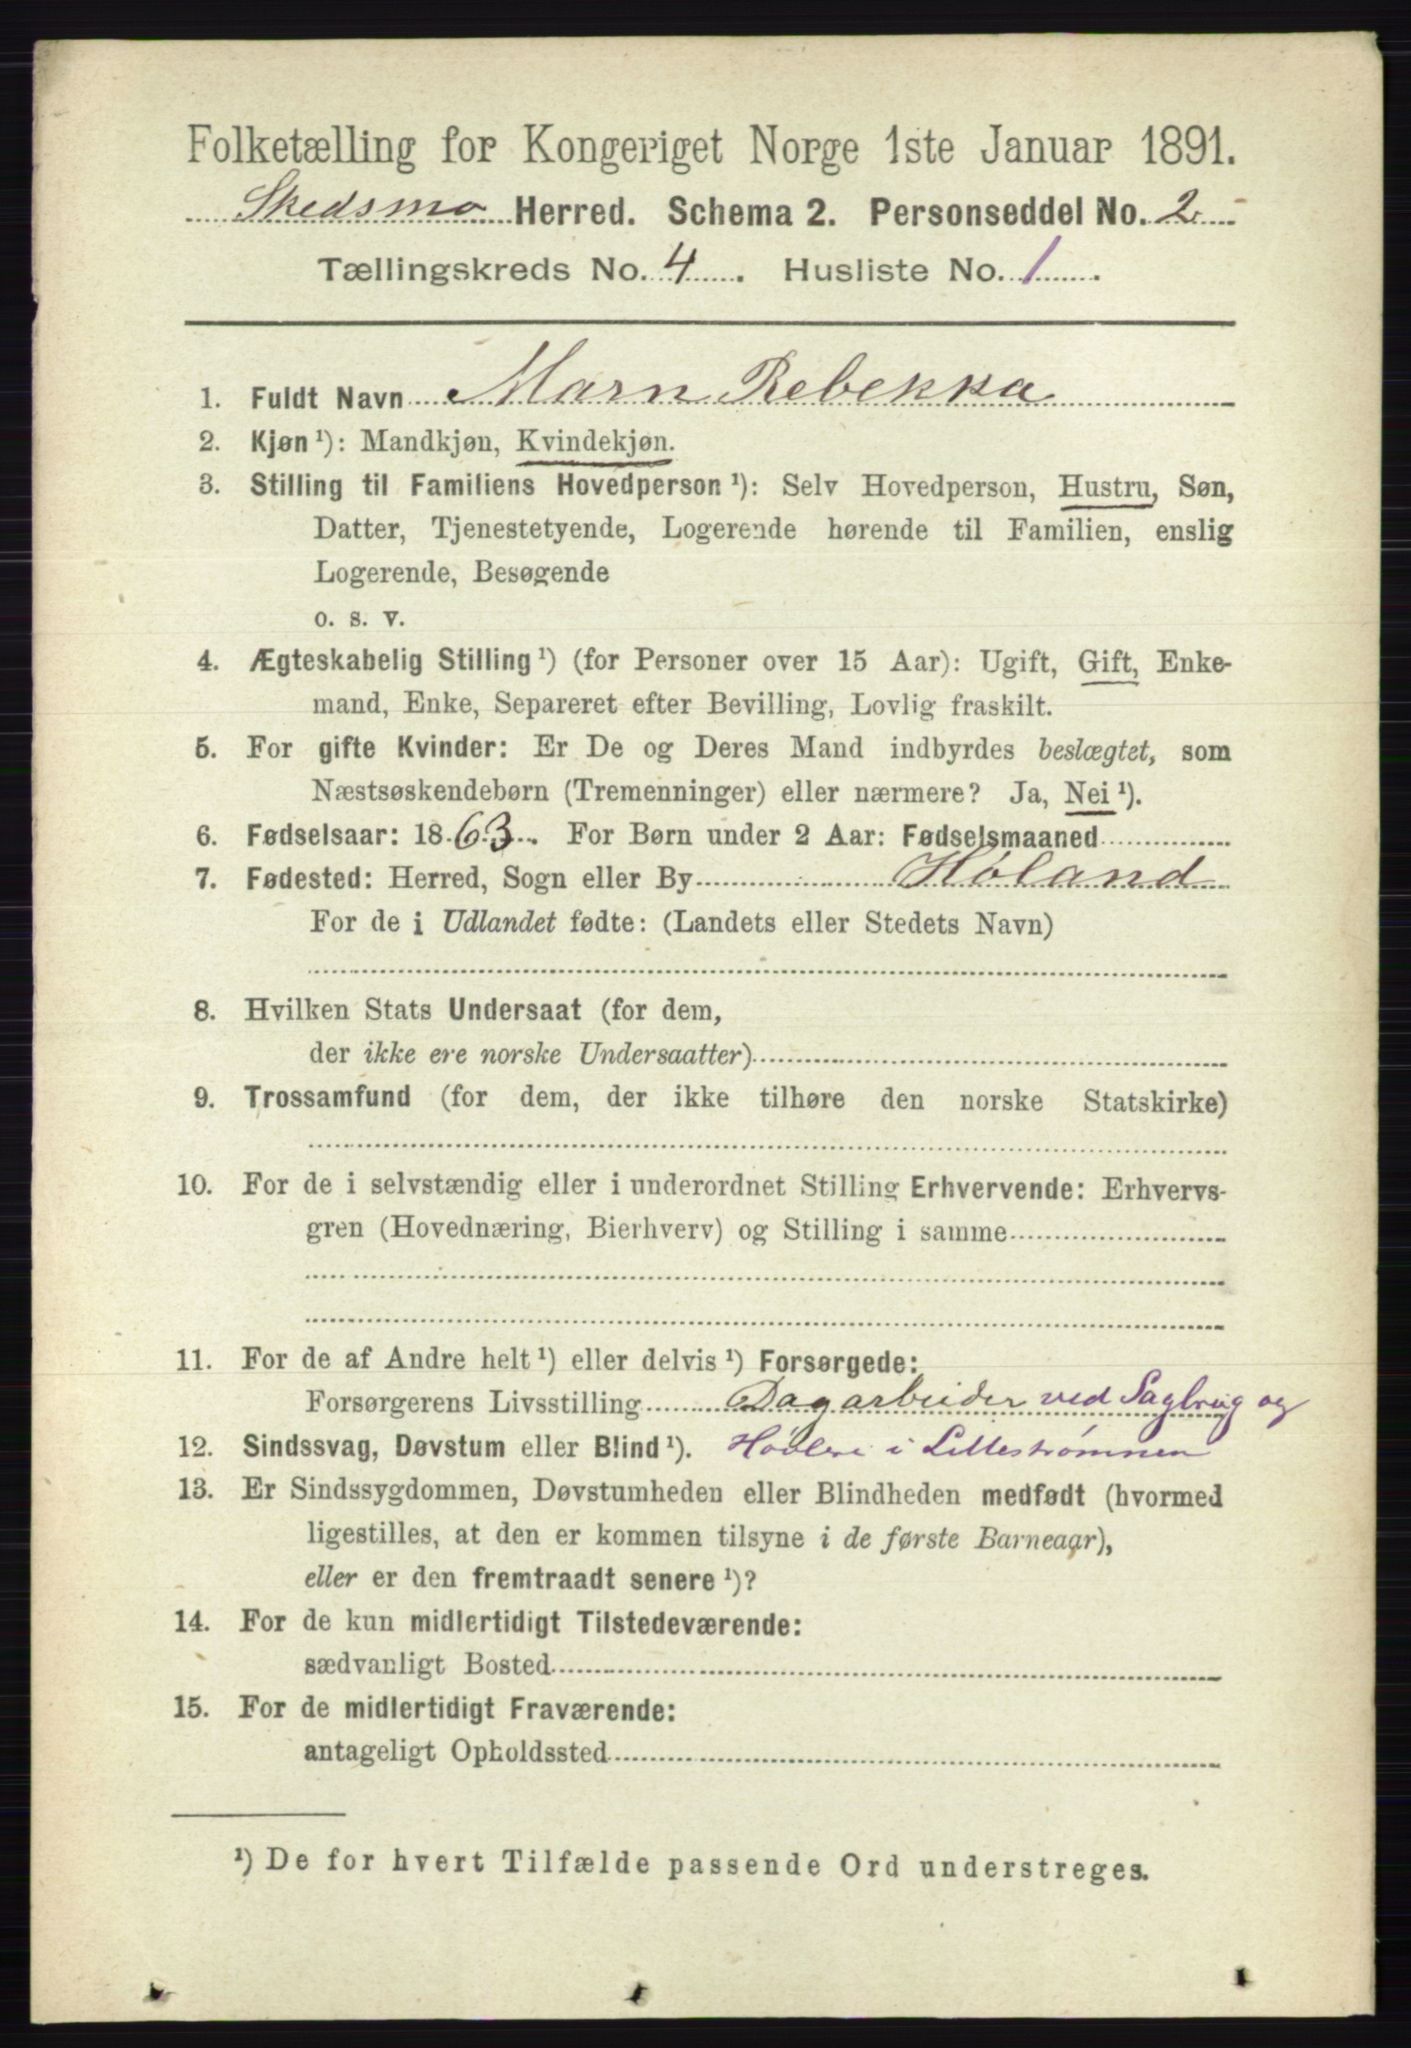 Folketælling for Kongeriget Norge 1ste Januar 1891.
Skedsmo Herred. Schema 2. Personseddel No. 2
Tællingskreds No. 4. Husliste No. 1.
1. Fuldt Navn Marn Rebekka
2. Kjøn ¹): Mandkjøn, Kvindekjøn.
3. Stilling til Familiens Hovedperson ¹): Selv Hovedperson, Hustru, Søn,
Datter, Tjenestetyende, Logerende hørende til Familien, enslig
Logerende, Besøgende
o. s. v.
4. Ægteskabelig Stilling ¹) (for Personer over 15 Aar): Ugift, Gift, Enke-
mand, Enke, Separeret efter Bevilling, Lovlig fraskilt.
5. For gifte Kvinder: Er De og Deres Mand indbyrdes beslægtet, som
Næstsøskendebørn (Tremenninger) eller nærmere? Ja, Nei ¹).
6. Fødselsaar: 1863. For Børn under 2 Aar: Fødselsmaaned
7. Fødested: Herred, Sogn eller By Høland
For de i Udlandet fødte: (Landets eller Stedets Navn)
8. Hvilken Stats Undersaat (for dem,
der ikke ere norske Undersaatter)
9. Trossamfund (for dem, der ikke tilhøre den norske Statskirke)
10. For de i selvstændig eller i underordnet Stilling Erhvervende: Erhvervs-
gren (Hovednæring, Bierhverv) og Stilling i samme
11. For de af Andre helt ¹) eller delvis ¹) Forsørgede:
Forsørgerens Livsstilling Dagarbeider ved Sagbrug og
12. Sindssvag, Døvstum eller Blind ¹). Høvleri i Lillestrømmen
13. Er Sindssygdommen, Døvstumheden eller Blindheden medfødt (hvormed
ligestilles, at den er kommen tilsyne i de første Barneaar),
eller er den fremtraadt senere ¹)?
14. For de kun midlertidigt Tilstedeværende:
sædvanligt Bosted
15. For de midlertidigt Fraværende:
antageligt Opholdssted
¹) De for hvert Tilfælde passende Ord understreges.